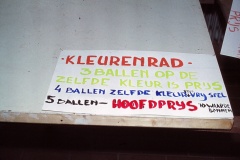 · KLEURENRAD ·
3 BALLEN OP DE
ZELFDE KLEUR IS PRYS
4 BALLEN ZELFDE KLEUR VRY SPEL
5 BALLEN - HOOFDPRYS